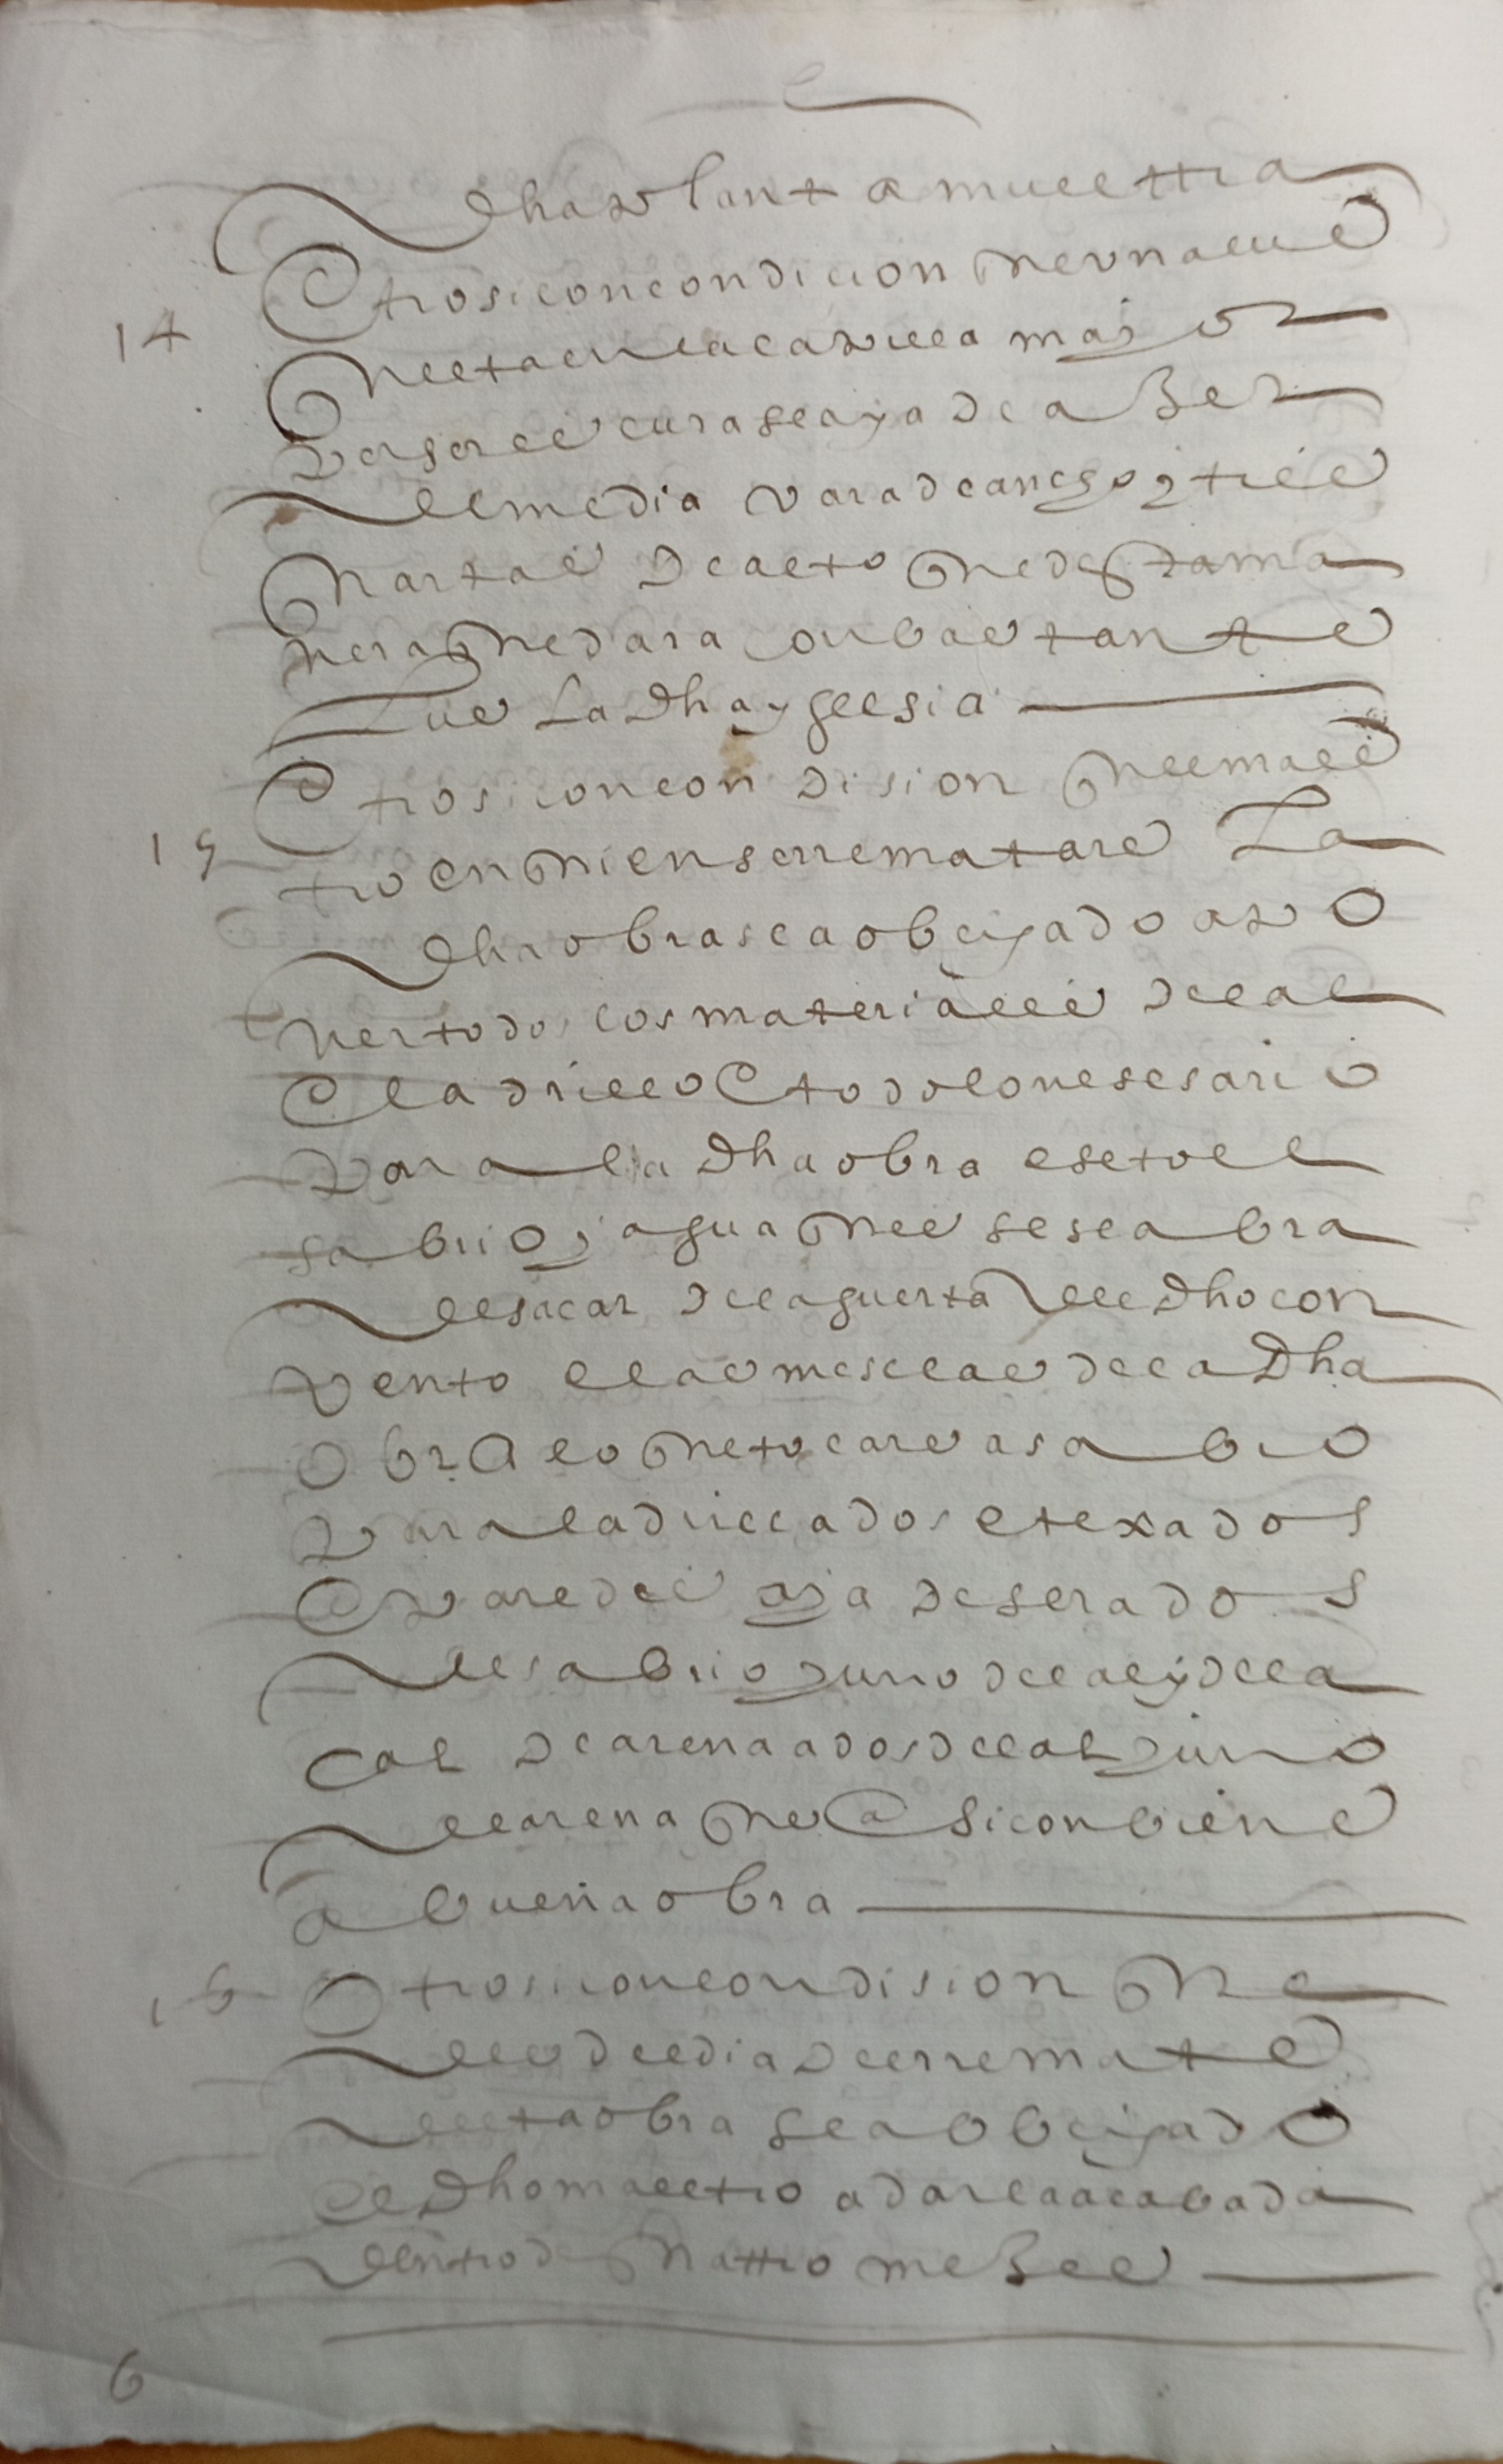 dha planta muestra
14 Otrosi con condicion que una lus
questa en la capilla mayor
por ser escura se aya de aser
de media vara de ancho y tres
quartas de alto que desta ma
nera quedara con bastante
lus la dha yglesia
15 Otrosi con condision quel maes
tro en quien se rrematare la
dha obra sea obligado a po
ner todos los materiales de cal
e ladrillo e todo lo nesesario
para la dha obra eseto el
sabrio y agua que se se abra
de sacar de la guerta del dho con
vento e las mesclas de la dha
obra lo que tocare a sabrio
para ladrillados e texados
e paredes aya de ser a dos
de sabrio y uno de cal y de la
cal de arena a dos de cal y uno
de arena que asi conbiene
a buena obra
16 Otrosi con condision que
desde el dia del rremate
desta obra sea obligado
el dho maestro a darla acabada
dentro de quattro meses
6